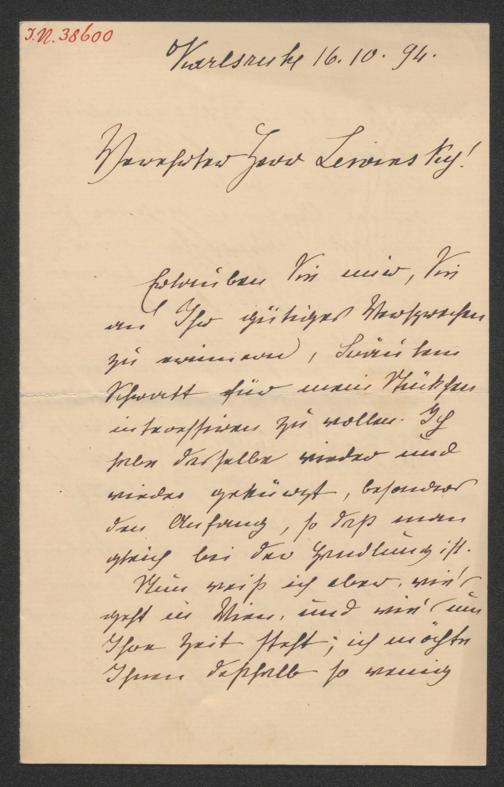 I.N. 38600
Karlsruhe 16.10.94.
Verehrter Herr Lewinsky!
Erlauben Sie mir, Sie
an Ihr gütiges Versprechen
zu erinnern, Fräulein
Schratt für mein Stückchen
interessiren zu wollen. Ich
habe dasselbe wieder und
wieder gekürzt, besonders
den Anfang, so daß man
gleich bei der Handlung ist.
Nun weiß ich aber, wie's
geht in Wien, und wie's um
Ihre Zeit steht; ich möchte
Ihnen deßhalb so wenig